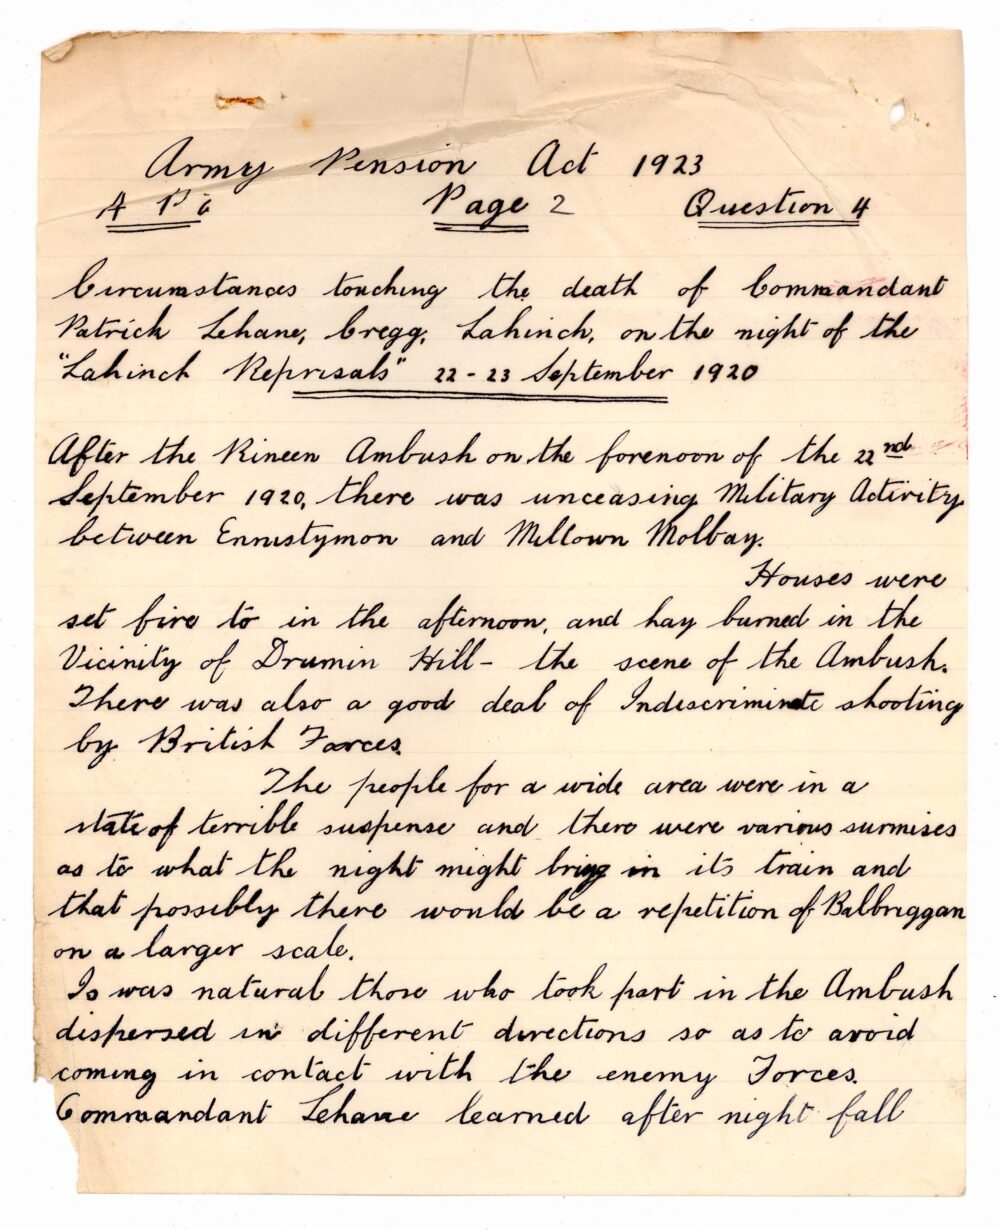 Army Pension Act 1923
A P 6 Page 2 Question 4
Circumstances touching the death of Commandant
Patrick Lehane, Cregg, Lahinch, on the night of the
"Lahinch Reprisals" 22 - 23 September 1920
After the Rineen Ambush on the forenoon of the 22nd
September 1920, there was unceasing Military Activity
between Ennistymon and Milltown Molbay.
Houses were
set fire to in the afternoon, and hay burned in the
Vicinity of Drumin Hill - the scene of the Ambush.
There was also a good deal of Indiscriminate shooting
by British Forces.
The people for a wide area were in a
state of terrible suspense and there were various surmises
as to what the night might bring in its train and
that possibly there would be a repetition of Balbriggan
on a larger scale.
Is was natural those who took part in the Ambush
dispersed in different directions so as to avoid
coming in contact with the enemy Forces.
Commandant Lehane learned after night fall